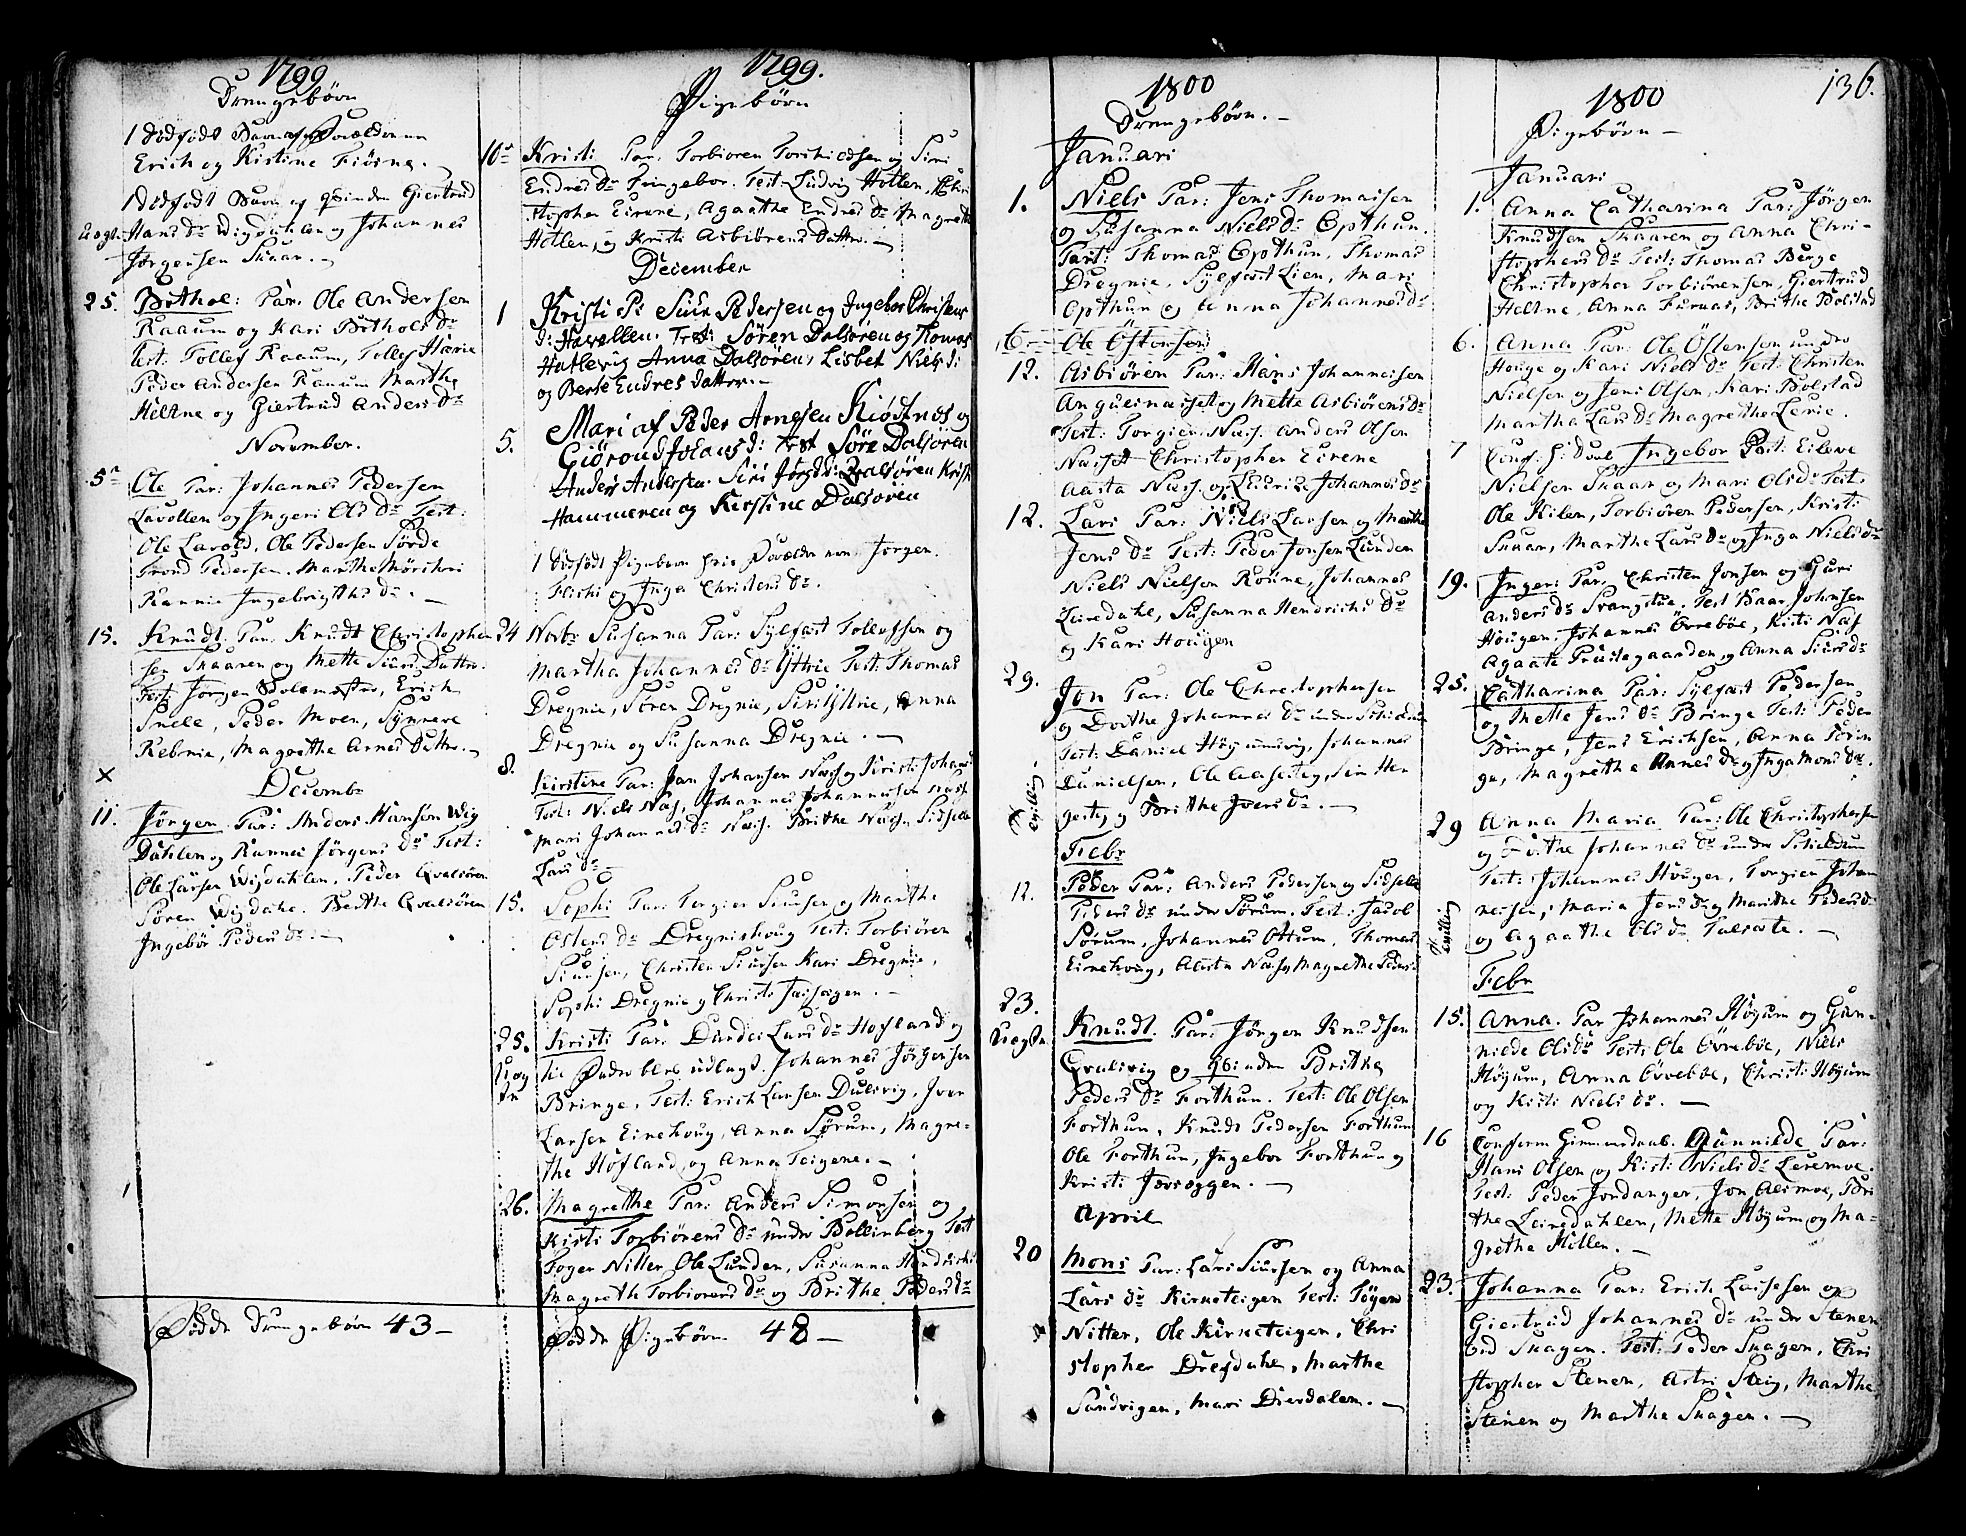 1799
Drengebörn
1 dödfödt Barn af Forældrene
Erich og Kistine Fiösne.
1 dödfödt Barn af qvinden Giertrud
uægt. Hans Dr Wigdahlen og Johannes
Jörgensen Skaar.
25. Bothol: Par: Ole Andersen
Raaum og Kari Bothols Dr
Test: Tollef Raaum, Tollef
Peder Andersen Raaum Marthe
Heltne og Giertrud Anders Dr
November.
5te Ole Par: Johannes Pedersen
Lavollen og Ingeri Ols Dr Test:
Ole Lavold, Ole Pedersen Sörde
Trond Pedersen. Marthe Mörchri
Rannie Ingebrigths Dr.
15. Knudt. Par: Knudt Christophen
sen Skaaren og Mette Siurs Datter.
Test: Jörgen Erich
Snele, Peder Moen, Synneve
Rebnie, Magrethe Arnes Datter.
× Decembr
11. Jörgen Par: Anders Hansen Wig
Dahlen og Rannei Jörgens Dr Test:
Ole Larsen Wigdahlen, Peder Qvalsören
Sören Wigdahl. Berthe Qvalsören
Ingebör Peders Dr.
Födde Drengebörn 43

1799.
Pigebörn
10de Kristi Par: Torbioren og Siri
Endres Dr Fringebor. Test: Ludvig Hotlen, Chri
stopher Eirene, Agaathe Endres Dr Magrethe
Hotlen, og Kristi Asbiörens Datter.
December
1 Kristi P: Siur Pedersen og Ingebor Christens
d: Havollen. Test: Sören Dalsören og Thomas
Hatlevig Anna Dalsören, Lisbet Niels d:
og Berte Endres datter.
5. Mari af Peder Arnesen Kiödtnæs og
Giörond Jolans d: test Söre Dalsören
Anders Andersen. Siri Jörgs d: Dalsören Kristi
Hammeren og Kerstine Dalsören
1 dödfödt Pigebarn Forældrene Jörgen
Flichi og Inga Christens Dr.
24 Novbr Susanna Par: Sylfæst Tollefsen og
Martha Johannes Dr Yttrie Test: Thomas
Dregnie, Sören Dregnie, Siri Yttrie, Anna
Dregnie og Susanna Dregnie.
8. Kirstine Par: Jan Johansen Næs og Kirsti Johans
Test: Niels Næs, Johannes Johannessen Næss
Mari Johannes Dr Næss. Brithe Næss. Sidsele
Lars Dr
15. Sophi Par: Torgier Siursen og Marthe
Ostens Dr Dregnishoug Test: Torbiören
Siursen, Christen Siursen Kari Dregnie,
Sophi Dregnie og Christi
25. Kristi Par: Dandei Lars Dr Hofland og
uægte til Fader blev udlagt. Johannes Jörgensen
Bringe. Test: Erich Larsen Dulsvig, Iver
Larsen Einehoug, Anna Sörum, Magre-
the Hofland, og Anna Teigene.
26. Magrethe Par: Anders Simonsen og
Kisti Torbiörens Dr under Bollinberg Test
Toger Nitter Ole Lunden, Susanna Hendrichs
Magreth Torbiorens Dr og Brithe Peders Dr
Födde Pigebörn 48

1800
Drengebörn.
Januari
1. Niels Par: Jens Thomassen
og Susanna Niels Dr Opthun.
Test: Thomas Opthun, Thomas
Dregnie, Sylfæst Lien, Mari
Opthun og Anna Johannes Dr
6 Ole Östensen
12. Asbiören Par: Hans Johannessen
og Mette Asbiörens Dr
Test: Torgier Næss. Anders Olsen
Næss Christopher Eirene
Aasta Næss. og Laurize Johannes Dr
12. Lars Par: Niels Larsen og Marthe
Jens Dr Test: Peder Jonsen Lunden
Niels Nielsen Roüne, Johannes
Leiredahl, Susanna Hendrichs Dr
og Kari Hougen
29. Jon Par: Ole Christophersen
og Dorthe Johannes Dr under
Test: Daniel Högmundvig, Johannes
Danielsen, Ole
og Brithe Ivers Dr.
Tvilling
Febr
12. Peder Par: Anders Pedersen og Sidsele
Peders Dr under Sörum. Test: Jacob
Sörum, Johannes Ottum, Thomas
Einehoug, Aasta Næss og Magrethe Peders d
23. Knudt. Par: Jörgen Knudsen
uægte Qvalsvig og Qvinden Brithe
Peders Dr Forthun. Test: Ole Olsen
Forthun, Knudt Pedersen Forthun
Ole Forthun, Ingebor Forthun og
Kristi
April
20 Mons Par: Lars Siursen og Anna
Lars Dr Kirketeigen Test: Töger
Nitter, Ole Kirketeigen, Chri
stopher Dregdahl, Marthe
Sandvigen, Mari Dierdalen.

136.
1800
Pigebörn
Januari
1. Anna Catharina Par: Jörgen
Knudsen Skaaren og Anna Chri-
stophers Dr Test: Thomas Berge
Christopher Torbiörensen, Giertrud
Heltne, Anna Furnæs, Brithe Bolstad
6. Anna Par: Ole Östensen under
Houge og Kari Niels Dr Test: Christen
Nielsen og Jens Olsen, Kari Bolstad
Martha Lars Dr Magrethe Lerie.
7 Conf. H: Daab Ingebor Par: Eileve
Nielsen Skaar og Mari Ols Dr Test:
Ole Kilen, Torbiören Pedersen, Kristi
Skaar, Marthe Lars Dr og Inga Niels Dr
19. Ingeri Par. Christen Jonsen og Guri
Anders Dr Svangstue. Test Baar Johnsen
Hougen. Johannes Övreböe, Kisti Næss
Agaate Prestegaarden og Anna Siurs Dr
25. Catharina Par: Sylfæst Pedersen
og Mette Jens Dr Bringe Test: Peder
Bringe, Jens Erichsen, Anna
ge, Magrethe Annes Dr og Inga Mons Dr.
29 Anna Maria Par: Ole Christophersen
og Dorthe Johannes Dr under
Test: Johannes Houger, Torgier Johan
nessen, Maria Jens Dr og Marithe Peders d
og Agaathe Ols Dr Talsæte.
Tvilling
Febr
15. Anna. Par Johannes Höyum og Gun-
nilde Ols Dr Test: Ole Övreböe, Niels
Höyum, Anna Övreböe, Christi Höyum
og Kisti Niels Dr.
16 Conferm Giemmedaab. Gunnilde Par:
Hans Olsen og Kisti Niels Dr Leremoe.
Test: Peder Jordanger, Jon Alsmoe, Bri
the Leiredahlen, Mette Höyum og Ma-
grethe Hillen.
23. Johanna Par: Erich Lassesen og
Giertrud Johannes Dr under Stenen
ved Skagen. Test: Peder Skagen, Chri
stopher Stenen, Astri Steig, Marthe
Stenen og Marthe Skagen.